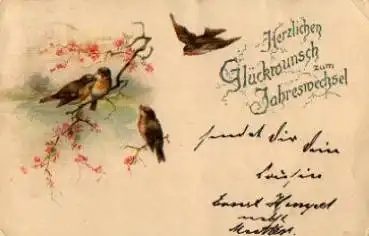 Herzlichen
Glückwunsch
zum
Jahreswechsel
sendet dir dein
Cousin
Ernst